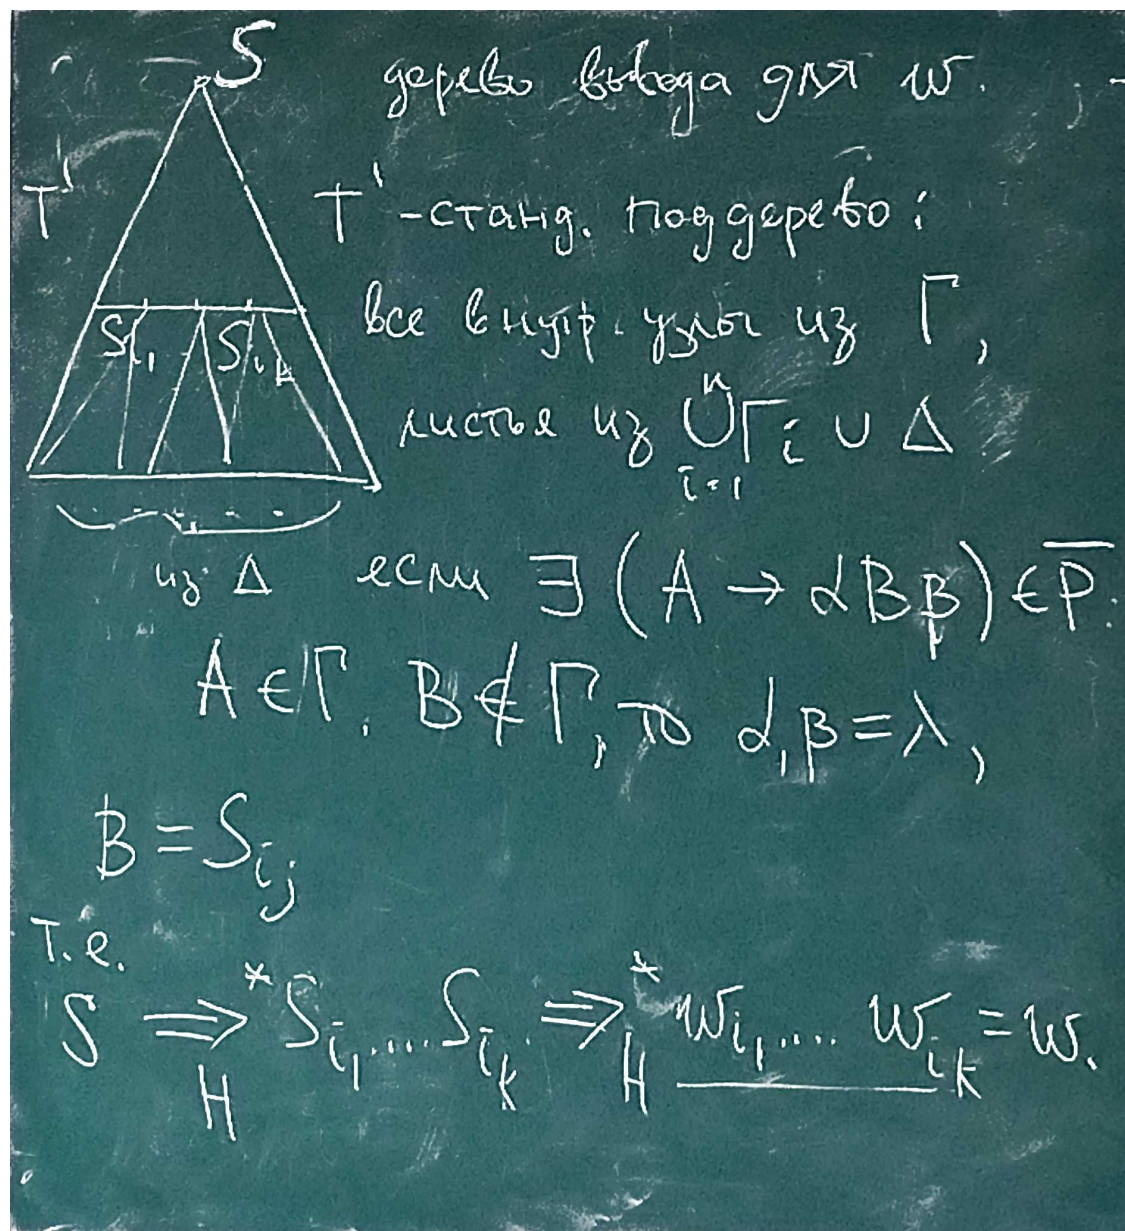 S дерево вывода для w.
T' T' -станд. поддерево:
все внутр. узлы из Γ,
S_{i_1} S_{i_k}
листья из ⋃_{i=1}^{n} Γ_i ∪ Δ
из Δ если ∃ (A → αBβ) ∈ P̅.
A ∈ Γ, B ∉ Γ, то α, β = λ,
B = S_{i_j}
т.е.
S ⇒*_H S_{i_1} .... S_{i_k} ⇒*_H w_{i_1} .... w_{i_k} = w.